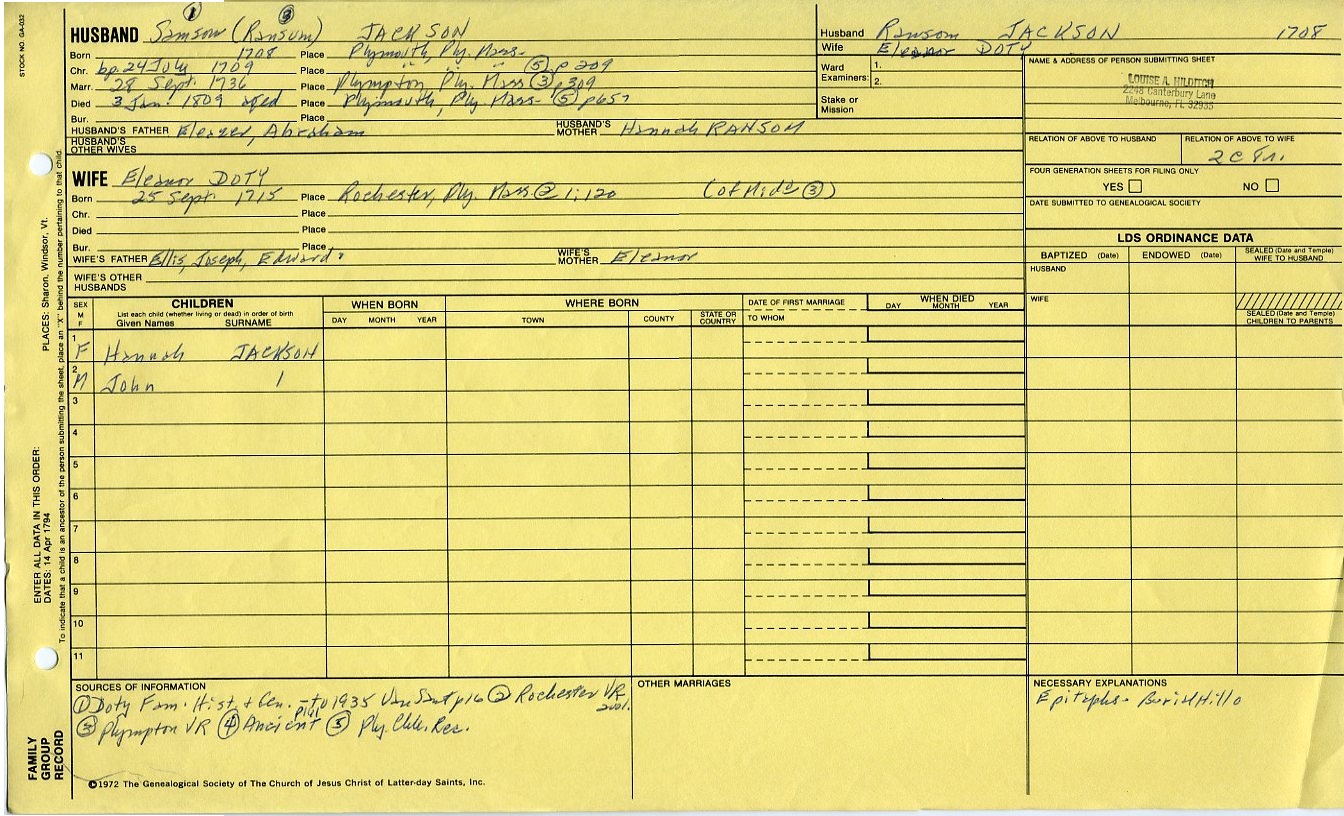 STOCK NO. GA-032
① ③
HUSBAND Samson (Ransom) JACKSON
Born 1708 Place Plymouth, Ply. Mass-
Chr. bp. 24 July 1709 Place " " " ⑤ p 209
Marr. 28 Sept. 1736 Place Plympton, Ply. Mass ③ p 309
Died 3 Jan. 1809 aged Place Plymouth, Ply. Mass- ⑤ p657
Bur. Place
HUSBAND'S FATHER Eleazer, Abraham HUSBAND'S MOTHER Hannah RANSOM
HUSBAND'S OTHER WIVES
WIFE Eleanor DOTY
Born 25 Sept. 1715 Place Rochester, Ply. Mass ② 1:120 (of Mid' ③)
Chr. Place
Died Place
Bur. Place
WIFE'S FATHER Ellis, Joseph, Edward WIFE'S MOTHER Eleanor
WIFE'S OTHER HUSBANDS
Husband Ransom JACKSON 1708
Wife Eleanor DOTY
Ward Examiners: 1.
2.
Stake or Mission
NAME & ADDRESS OF PERSON SUBMITTING SHEET
LOUISE A. HILDITCH
2248 Canterbury Lane
Melbourne, FL 32935
RELATION OF ABOVE TO HUSBAND RELATION OF ABOVE TO WIFE
2 C
FOUR GENERATION SHEETS FOR FILING ONLY
YES NO
DATE SUBMITTED TO GENEALOGICAL SOCIETY
LDS ORDINANCE DATA
BAPTIZED (Date) ENDOWED (Date) SEALED (Date and Temple) WIFE TO HUSBAND
HUSBAND
WIFE
SEALED (Date and Temple) CHILDREN TO PARENTS
SEX M F CHILDREN WHEN BORN WHERE BORN DATE OF FIRST MARRIAGE WHEN DIED
List each child (whether living or dead) in order of birth
Given Names SURNAME DAY MONTH YEAR TOWN COUNTY STATE OR COUNTRY TO WHOM DAY MONTH YEAR
1 F Hannah JACKSON
2 M John
3
4
5
6
7
8
9
10
11
SOURCES OF INFORMATION
① Doty Fam. Hist. & Gen. - to 1935 Van Sant p16 ② Rochester VR
③ Plympton VR ④ Ancient ⑤ Ply. Chh. Rec.
OTHER MARRIAGES
NECESSARY EXPLANATIONS
Epitaphs - Burial Hill
©1972 The Genealogical Society of The Church of Jesus Christ of Latter-day Saints, Inc.
FAMILY GROUP RECORD
ENTER ALL DATA IN THIS ORDER:
DATES: 14 Apr 1794
PLACES: Sharon, Windsor, Vt.
To indicate that a child is an ancestor of the person submitting the sheet, place an "X" behind the number pertaining to that child.